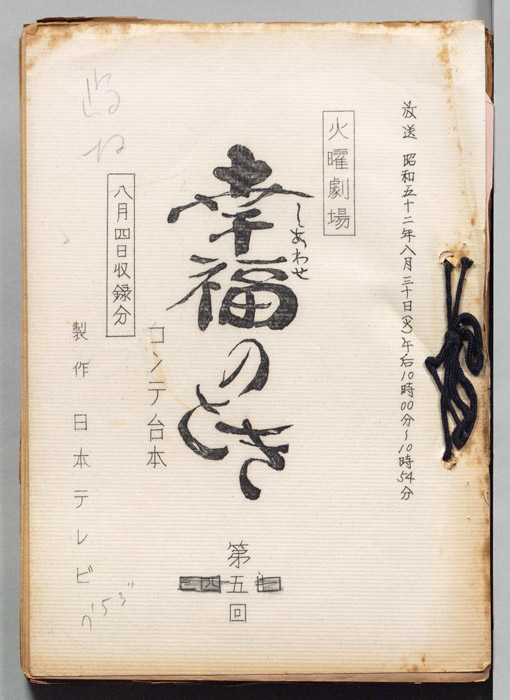 放送 昭和五十二年八月三十日(火)午后10時00分〜10時54分
火曜劇場
幸福のとき
しあわせ
コンテ台本
八月四日収録分
製作 日本テレビ
第五回